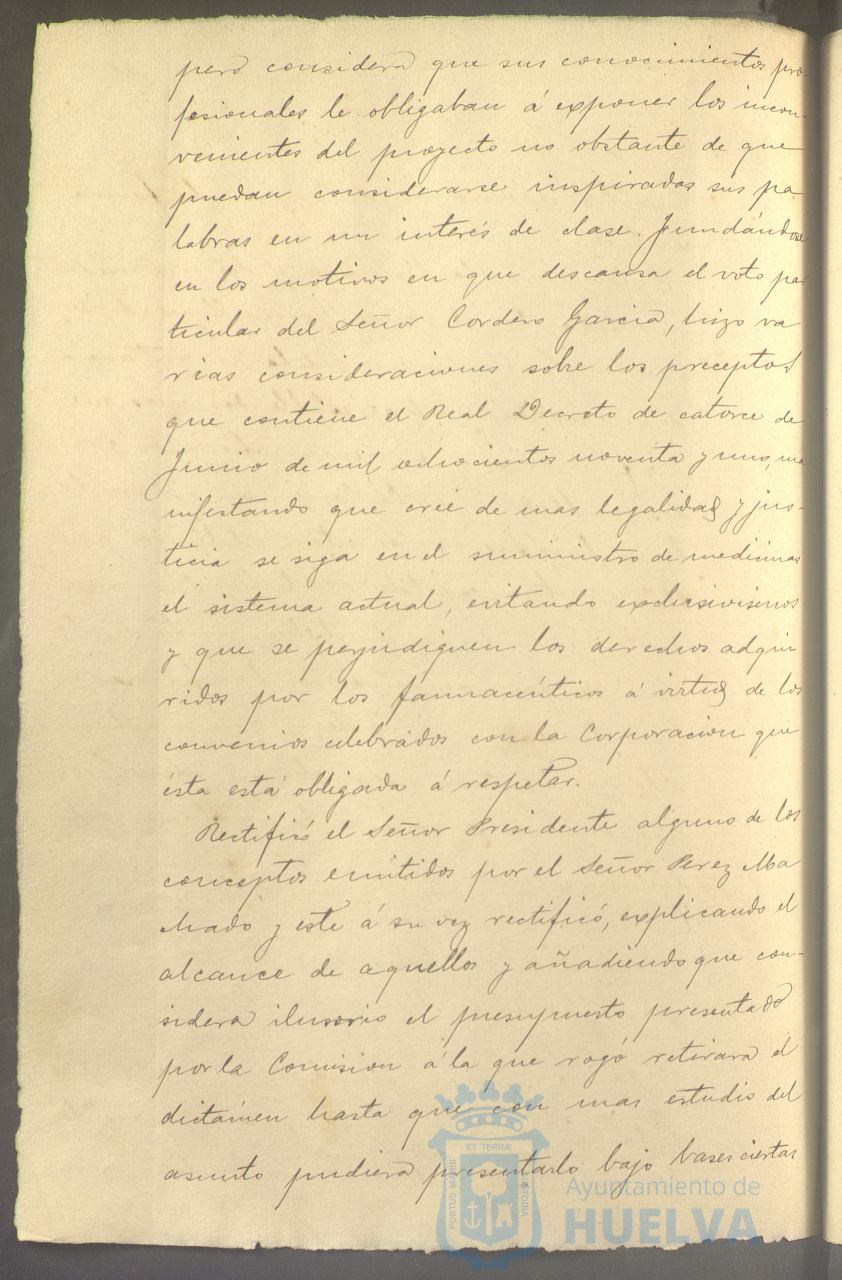 pero considera que sus conocimientos pro-
fesionales le obligaban á exponer los incon-
venientes del proyecto no obstante de que
puedan considerarse inspiradas sus pa
labras en un interés de clase. Fundándose
en los motivos en que descansa el voto par
ticular del Señor Cordero García, hizo va
rias consideraciones sobre los preceptos
que contiene el Real Decreto de catorce de
Junio de mil ochocientos noventa y uno, ma
nifestando que creé de mas legalidad y jus-
ticia se siga en el suministro de medicinas
el sistema actual, evitando exclusivismos
y que se perjudiquen los derechos adqui
ridos por los farmacéuticos á virtud de los
convenios celebrados con la Corporacion que
ésta está obligada á respetar.
Rectificó el Señor Presidente alguno de los
conceptos emitidos por el Señor Perez Ma
chado y este á su vez rectificó, explicando el
alcance de aquellos y añadiendo que con-
sidera ilusorio el presupuesto presentado
por la Comision á la que rogó retirara el
dictámen hasta que con mas estudio del
asunto pudiera presentarlo bajo bases ciertas
ET TERRA
PORTUS MARIS
CUSTODIA
Ayuntamiento de
HUELVA